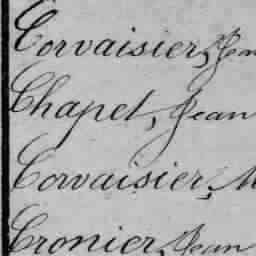 Corvaisier, Jean
Chapet, Jean
Corvaisier, M
Cronier, Jean